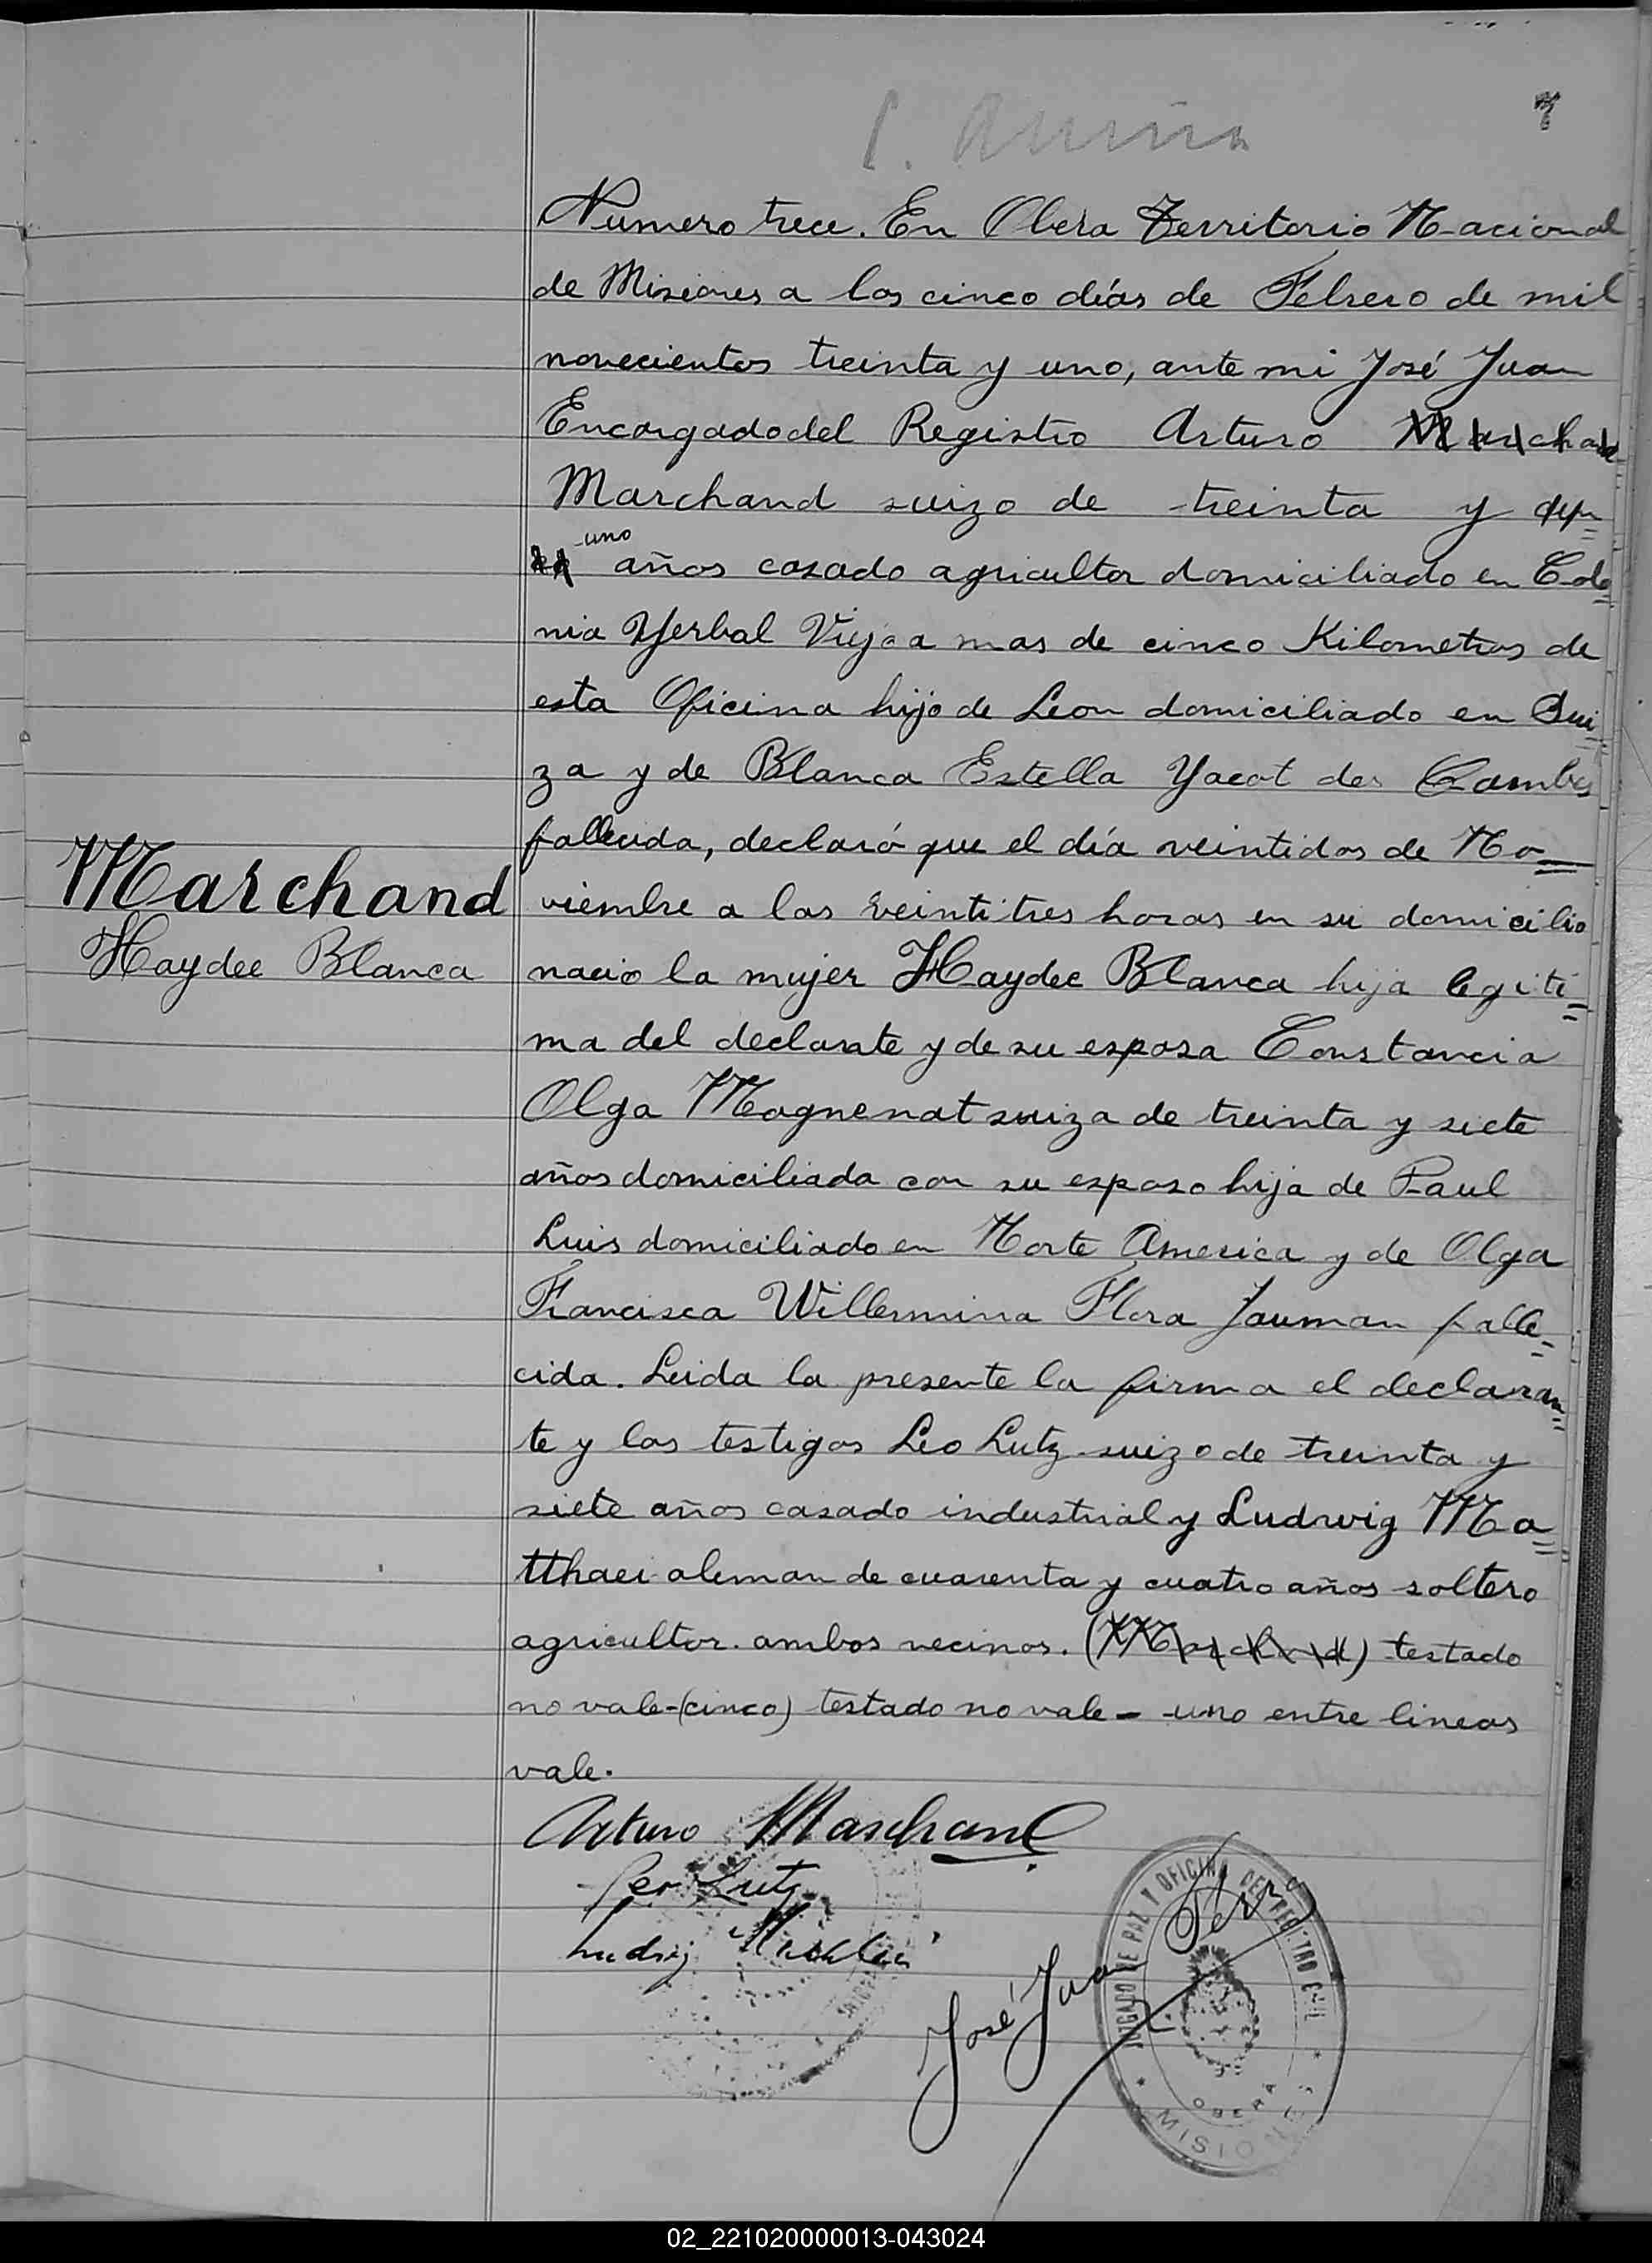 7
Numero trece. En Obera Territorio Nacional
de Misiones a los cinco días de Febrero de mil
novecientos treinta y uno, ante mi José Juan
Encargado del Registro Arturo Marchand
Marchand suizo de treinta y
uno
años casado agricultor domiciliado en Colo
nia Yerbal Viejo a mas de cinco Kilometros de
esta Oficina hijo de Leon domiciliado en Sui
za y de Blanca Estella Yacot des Combes
fallecida, declaró que el día veintidos de No
Marchand
viembre a las veintitres horas en su domicilio
Haydee Blanca
nacio la mujer Haydee Blanca hija legiti
ma del declarate y de su esposa Constancia
Olga Magnenat suiza de treinta y siete
años domiciliada con su esposo hija de Paul
Luis domiciliado en Norte America y de Olga
Francisca Willermina Flora Jauman falle
cida. Leida la presente la firma el declaran
te y los testigos Leo Lutz suizo de treinta y
siete años casado industrial y Ludwig Ma
tthaei aleman de cuarenta y cuatro años soltero
agricultor. ambos vecinos. (Marchand) testado
no vale-(cinco) testado no vale - uno entre lineas
vale.
Arturo Marchand
Lutz
José Juan
JUZGADO DE PAZ Y OFICINA DEL REGISTRO CIVIL
OBERA
MISIONES
02_221020000013-043024